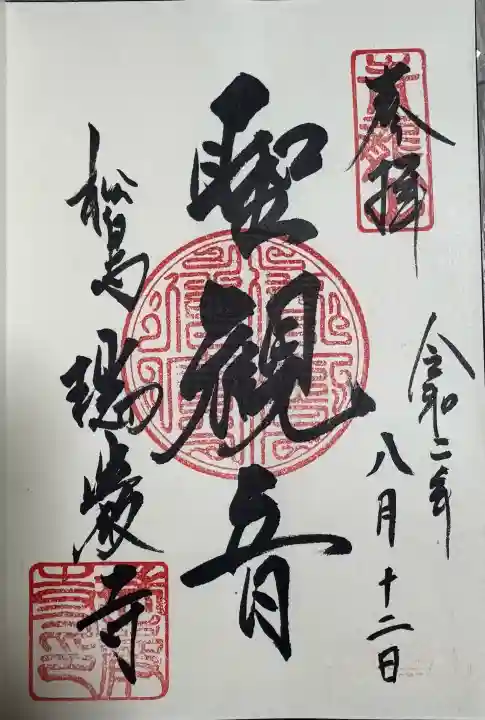 奉拝
令和二年
八月十二日
聖観音
松島瑞巌寺